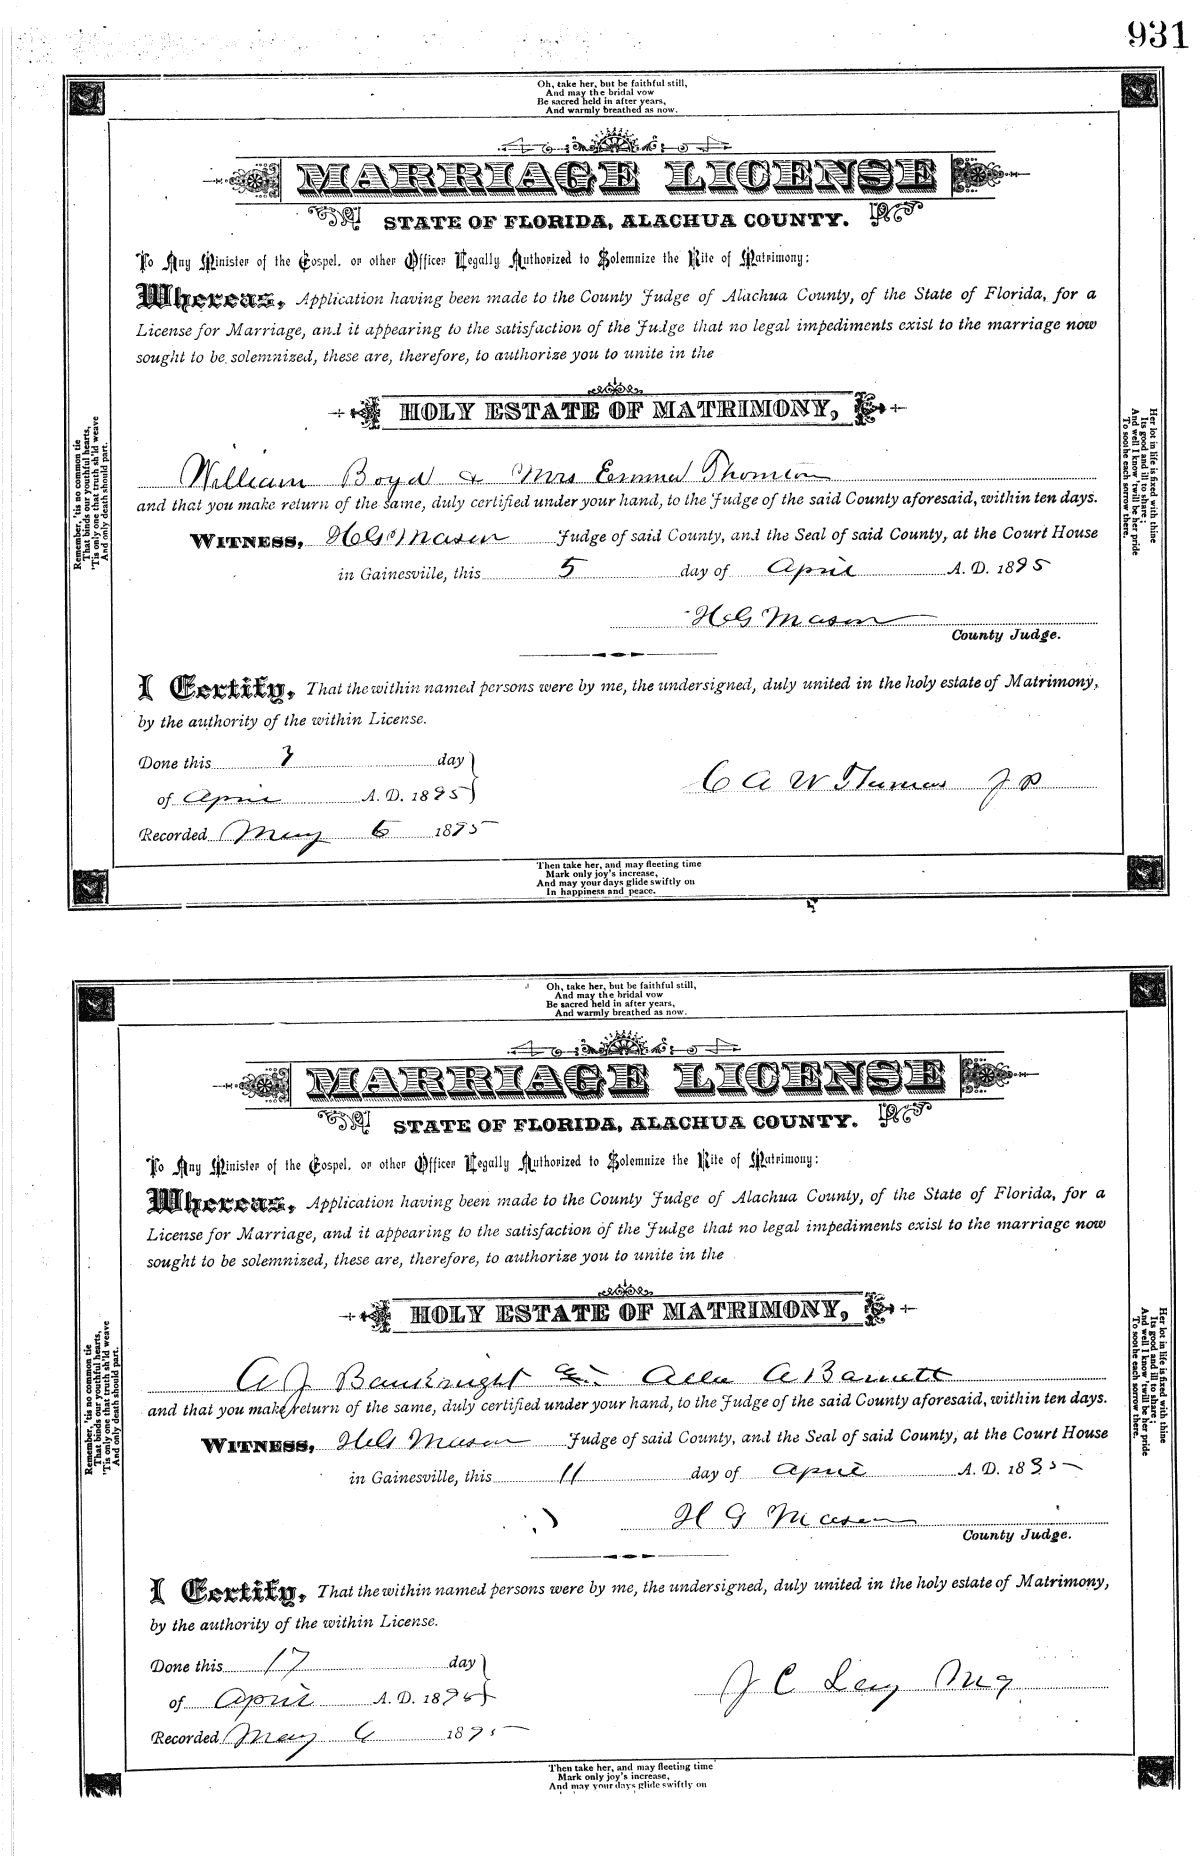 931
Oh, take her, but be faithful still,
And may the bridal vow
Be sacred held in after years,
And warmly breathed as now.
MARRIAGE LICENSE
STATE OF FLORIDA, ALACHUA COUNTY.
To Any Minister of the Gospel, or other Officer Legally Authorized to Solemnize the Rite of Matrimony:
Whereas, Application having been made to the County Judge of Alachua County, of the State of Florida, for a
License for Marriage, and it appearing to the satisfaction of the Judge that no legal impediments exist to the marriage now
sought to be solemnized, these are, therefore, to authorize you to unite in the
HOLY ESTATE OF MATRIMONY,
William Boyd & Mrs Emma Thornton
and that you make return of the same, duly certified under your hand, to the Judge of the said County aforesaid, within ten days.
WITNESS, H G Mason Judge of said County, and the Seal of said County, at the Court House
in Gainesville, this 5 day of April A. D. 1895
H G Mason
County Judge.
I Certify, That the within named persons were by me, the undersigned, duly united in the holy estate of Matrimony,
by the authority of the within License.
Done this 7 day
of April A. D. 1895
C A W Thomas J P
Recorded May 6 1895
Remember, 'tis no common tie
That binds our youthful hearts,
'Tis only one that truth sh'ld weave
And only death should part.
Her lot in life is fixed with thine
Its good and ill to share;
And well I know 'twill be her pride
To soothe each sorrow there.
Then take her, and may fleeting time
Mark only joy's increase,
And may your days glide swiftly on
In happiness and peace.
Oh, take her, but be faithful still,
And may the bridal vow
Be sacred held in after years,
And warmly breathed as now.
MARRIAGE LICENSE
STATE OF FLORIDA, ALACHUA COUNTY.
To Any Minister of the Gospel, or other Officer Legally Authorized to Solemnize the Rite of Matrimony:
Whereas, Application having been made to the County Judge of Alachua County, of the State of Florida, for a
License for Marriage, and it appearing to the satisfaction of the Judge that no legal impediments exist to the marriage now
sought to be solemnized, these are, therefore, to authorize you to unite in the
HOLY ESTATE OF MATRIMONY,
A J Bauknight & A Barnett
and that you make return of the same, duly certified under your hand, to the Judge of the said County aforesaid, within ten days.
WITNESS, H G Mason Judge of said County, and the Seal of said County, at the Court House
in Gainesville, this 11 day of April A. D. 1895
H G Mason
County Judge.
I Certify, That the within named persons were by me, the undersigned, duly united in the holy estate of Matrimony,
by the authority of the within License.
Done this 17 day
of April A. D. 1895
J C Ley M G
Recorded May 6 1895
Remember, 'tis no common tie
That binds our youthful hearts,
'Tis only one that truth sh'ld weave
And only death should part.
Her lot in life is fixed with thine
Its good and ill to share;
And well I know 'twill be her pride
To soothe each sorrow there.
Then take her, and may fleeting time
Mark only joy's increase,
And may your days glide swiftly on